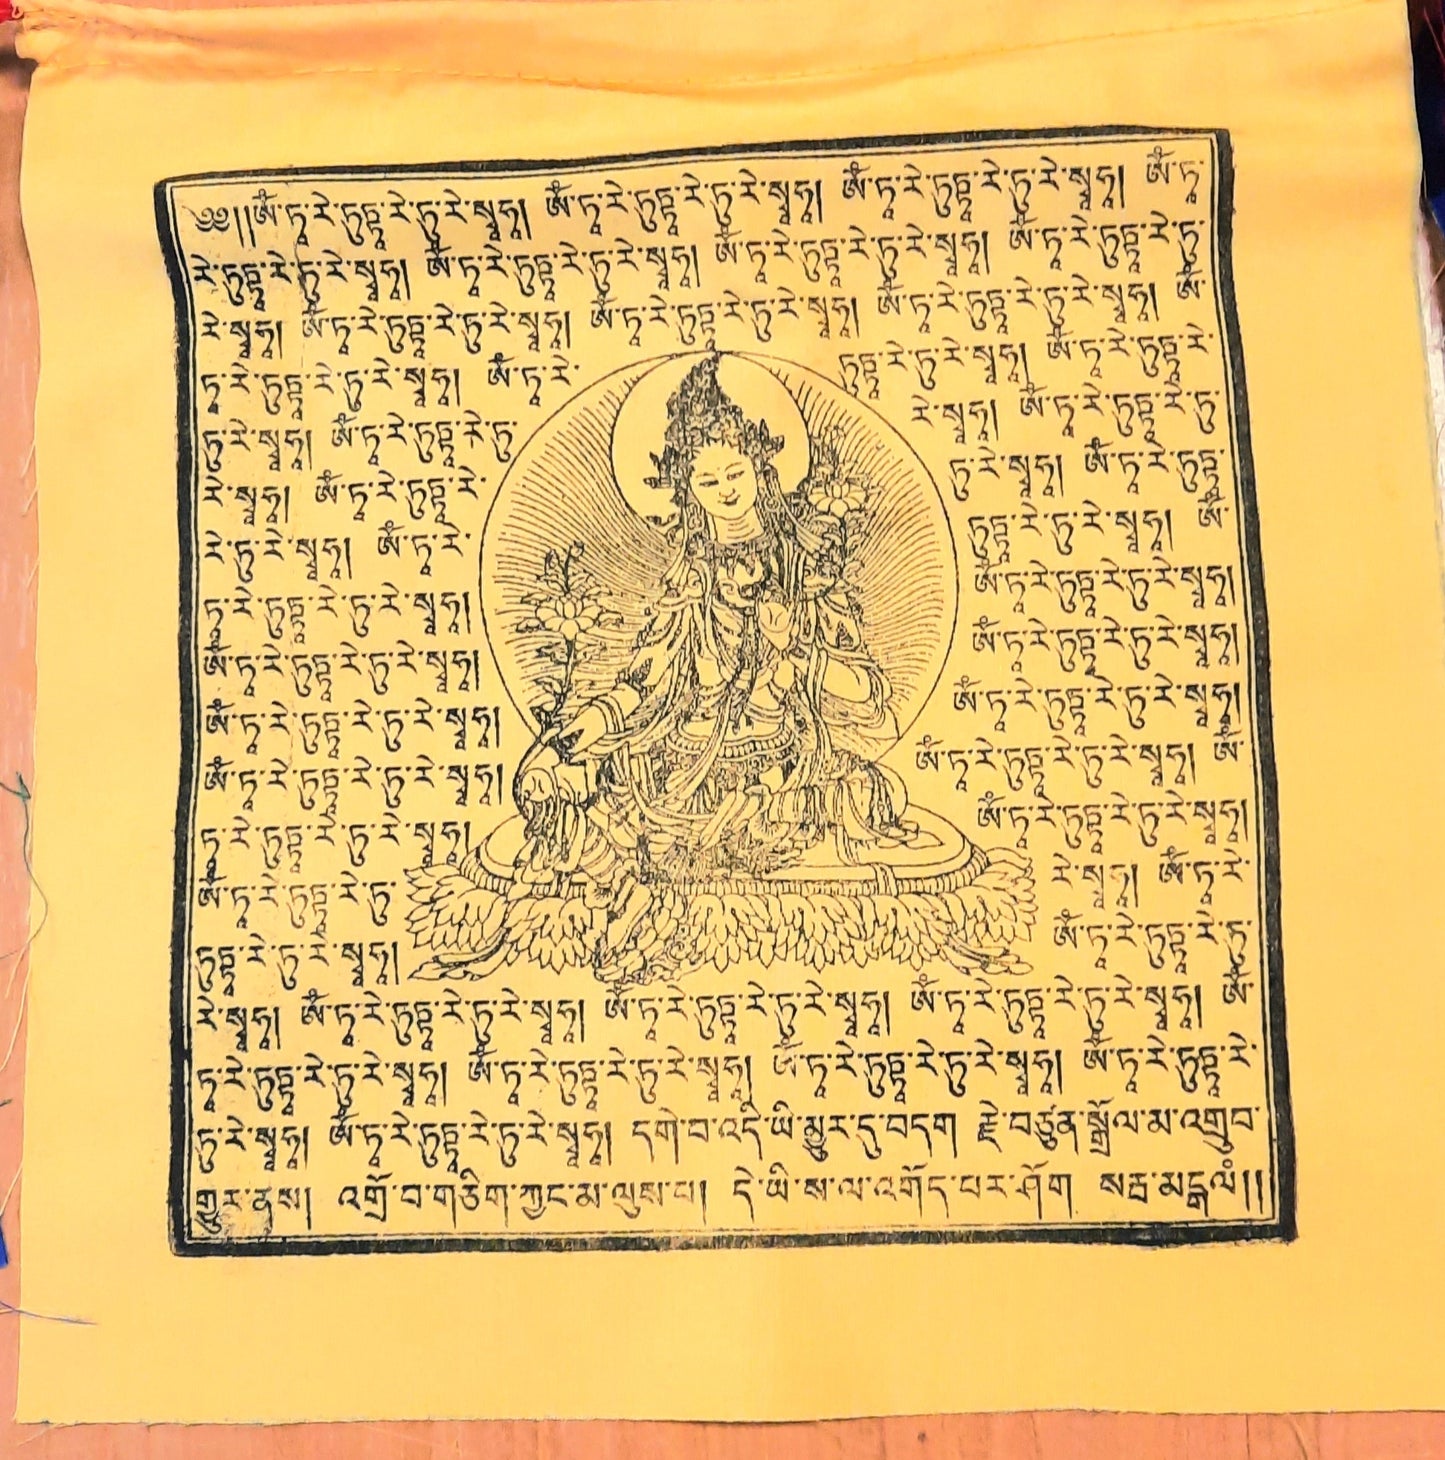 ༄༅།།ༀ་ཏཱ་རེ་ཏུཏྟཱ་རེ་ཏུ་རེ་སྭཱཧཱ། ༀ་ཏཱ་རེ་ཏུཏྟཱ་རེ་ཏུ་རེ་སྭཱཧཱ། ༀ་ཏཱ་རེ་ཏུཏྟཱ་རེ་ཏུ་རེ་སྭཱཧཱ། ༀ་ཏཱ་
རེ་ཏུཏྟཱ་རེ་ཏུ་རེ་སྭཱཧཱ། ༀ་ཏཱ་རེ་ཏུཏྟཱ་རེ་ཏུ་རེ་སྭཱཧཱ། ༀ་ཏཱ་རེ་ཏུཏྟཱ་རེ་ཏུ་རེ་སྭཱཧཱ། ༀ་ཏཱ་རེ་ཏུཏྟཱ་རེ་ཏུ་
རེ་སྭཱཧཱ། ༀ་ཏཱ་རེ་ཏུཏྟཱ་རེ་ཏུ་རེ་སྭཱཧཱ། ༀ་ཏཱ་རེ་ཏུཏྟཱ་རེ་ཏུ་རེ་སྭཱཧཱ། ༀ་ཏཱ་རེ་ཏུཏྟཱ་རེ་ཏུ་རེ་སྭཱཧཱ། ༀ་
ཏཱ་རེ་ཏུཏྟཱ་རེ་ཏུ་རེ་སྭཱཧཱ། ༀ་ཏཱ་རེ་ ཏུཏྟཱ་རེ་ཏུ་རེ་སྭཱཧཱ། ༀ་ཏཱ་རེ་ཏུཏྟཱ་རེ་
ཏུ་རེ་སྭཱཧཱ། ༀ་ཏཱ་རེ་ཏུཏྟཱ་རེ་ཏུ་ རེ་སྭཱཧཱ། ༀ་ཏཱ་རེ་ཏུཏྟཱ་རེ་ཏུ་
རེ་སྭཱཧཱ། ༀ་ཏཱ་རེ་ཏུཏྟཱ་རེ་ ཏུ་རེ་སྭཱཧཱ། ༀ་ཏཱ་རེ་ཏུཏྟཱ་
རེ་ཏུ་རེ་སྭཱཧཱ། ༀ་ཏཱ་རེ་ ཏུཏྟཱ་རེ་ཏུ་རེ་སྭཱཧཱ། ༀ་
ཏཱ་རེ་ཏུཏྟཱ་རེ་ཏུ་རེ་སྭཱཧཱ། ༀ་ཏཱ་རེ་ཏུཏྟཱ་རེ་ཏུ་རེ་སྭཱཧཱ།
ༀ་ཏཱ་རེ་ཏུཏྟཱ་རེ་ཏུ་རེ་སྭཱཧཱ། ༀ་ཏཱ་རེ་ཏུཏྟཱ་རེ་ཏུ་རེ་སྭཱཧཱ།
ༀ་ཏཱ་རེ་ཏུཏྟཱ་རེ་ཏུ་རེ་སྭཱཧཱ། ༀ་ཏཱ་རེ་ཏུཏྟཱ་རེ་ཏུ་རེ་སྭཱཧཱ།
ༀ་ཏཱ་རེ་ཏུཏྟཱ་རེ་ཏུ་རེ་སྭཱཧཱ། ༀ་ཏཱ་རེ་ཏུཏྟཱ་རེ་ཏུ་རེ་སྭཱཧཱ། ༀ་
ཏཱ་རེ་ཏུཏྟཱ་རེ་ཏུ་རེ་སྭཱཧཱ། ༀ་ཏཱ་རེ་ཏུཏྟཱ་རེ་ཏུ་རེ་སྭཱཧཱ།
ༀ་ཏཱ་རེ་ཏུཏྟཱ་རེ་ཏུ་ རེ་སྭཱཧཱ། ༀ་ཏཱ་རེ་
ཏུཏྟཱ་རེ་ཏུ་རེ་སྭཱཧཱ། ༀ་ཏཱ་རེ་ཏུཏྟཱ་རེ་ཏུ་
རེ་སྭཱཧཱ། ༀ་ཏཱ་རེ་ཏུཏྟཱ་རེ་ཏུ་རེ་སྭཱཧཱ། ༀ་ཏཱ་རེ་ཏུཏྟཱ་རེ་ཏུ་རེ་སྭཱཧཱ། ༀ་ཏཱ་རེ་ཏུཏྟཱ་རེ་ཏུ་རེ་སྭཱཧཱ། ༀ་
ཏཱ་རེ་ཏུཏྟཱ་རེ་ཏུ་རེ་སྭཱཧཱ། ༀ་ཏཱ་རེ་ཏུཏྟཱ་རེ་ཏུ་རེ་སྭཱཧཱ། ༀ་ཏཱ་རེ་ཏུཏྟཱ་རེ་ཏུ་རེ་སྭཱཧཱ། ༀ་ཏཱ་རེ་ཏུཏྟཱ་རེ་
ཏུ་རེ་སྭཱཧཱ། ༀ་ཏཱ་རེ་ཏུཏྟཱ་རེ་ཏུ་རེ་སྭཱཧཱ། དགེ་བ་འདི་ཡི་མྱུར་དུ་བདག རྗེ་བཙུན་སྒྲོལ་མ་འགྲུབ་
གྱུར་ནས། འགྲོ་བ་གཅིག་ཀྱང་མ་ལུས་པ། དེ་ཡི་ས་ལ་འགོད་པར་ཤོག སརྦ་མངྒལཾ།།།